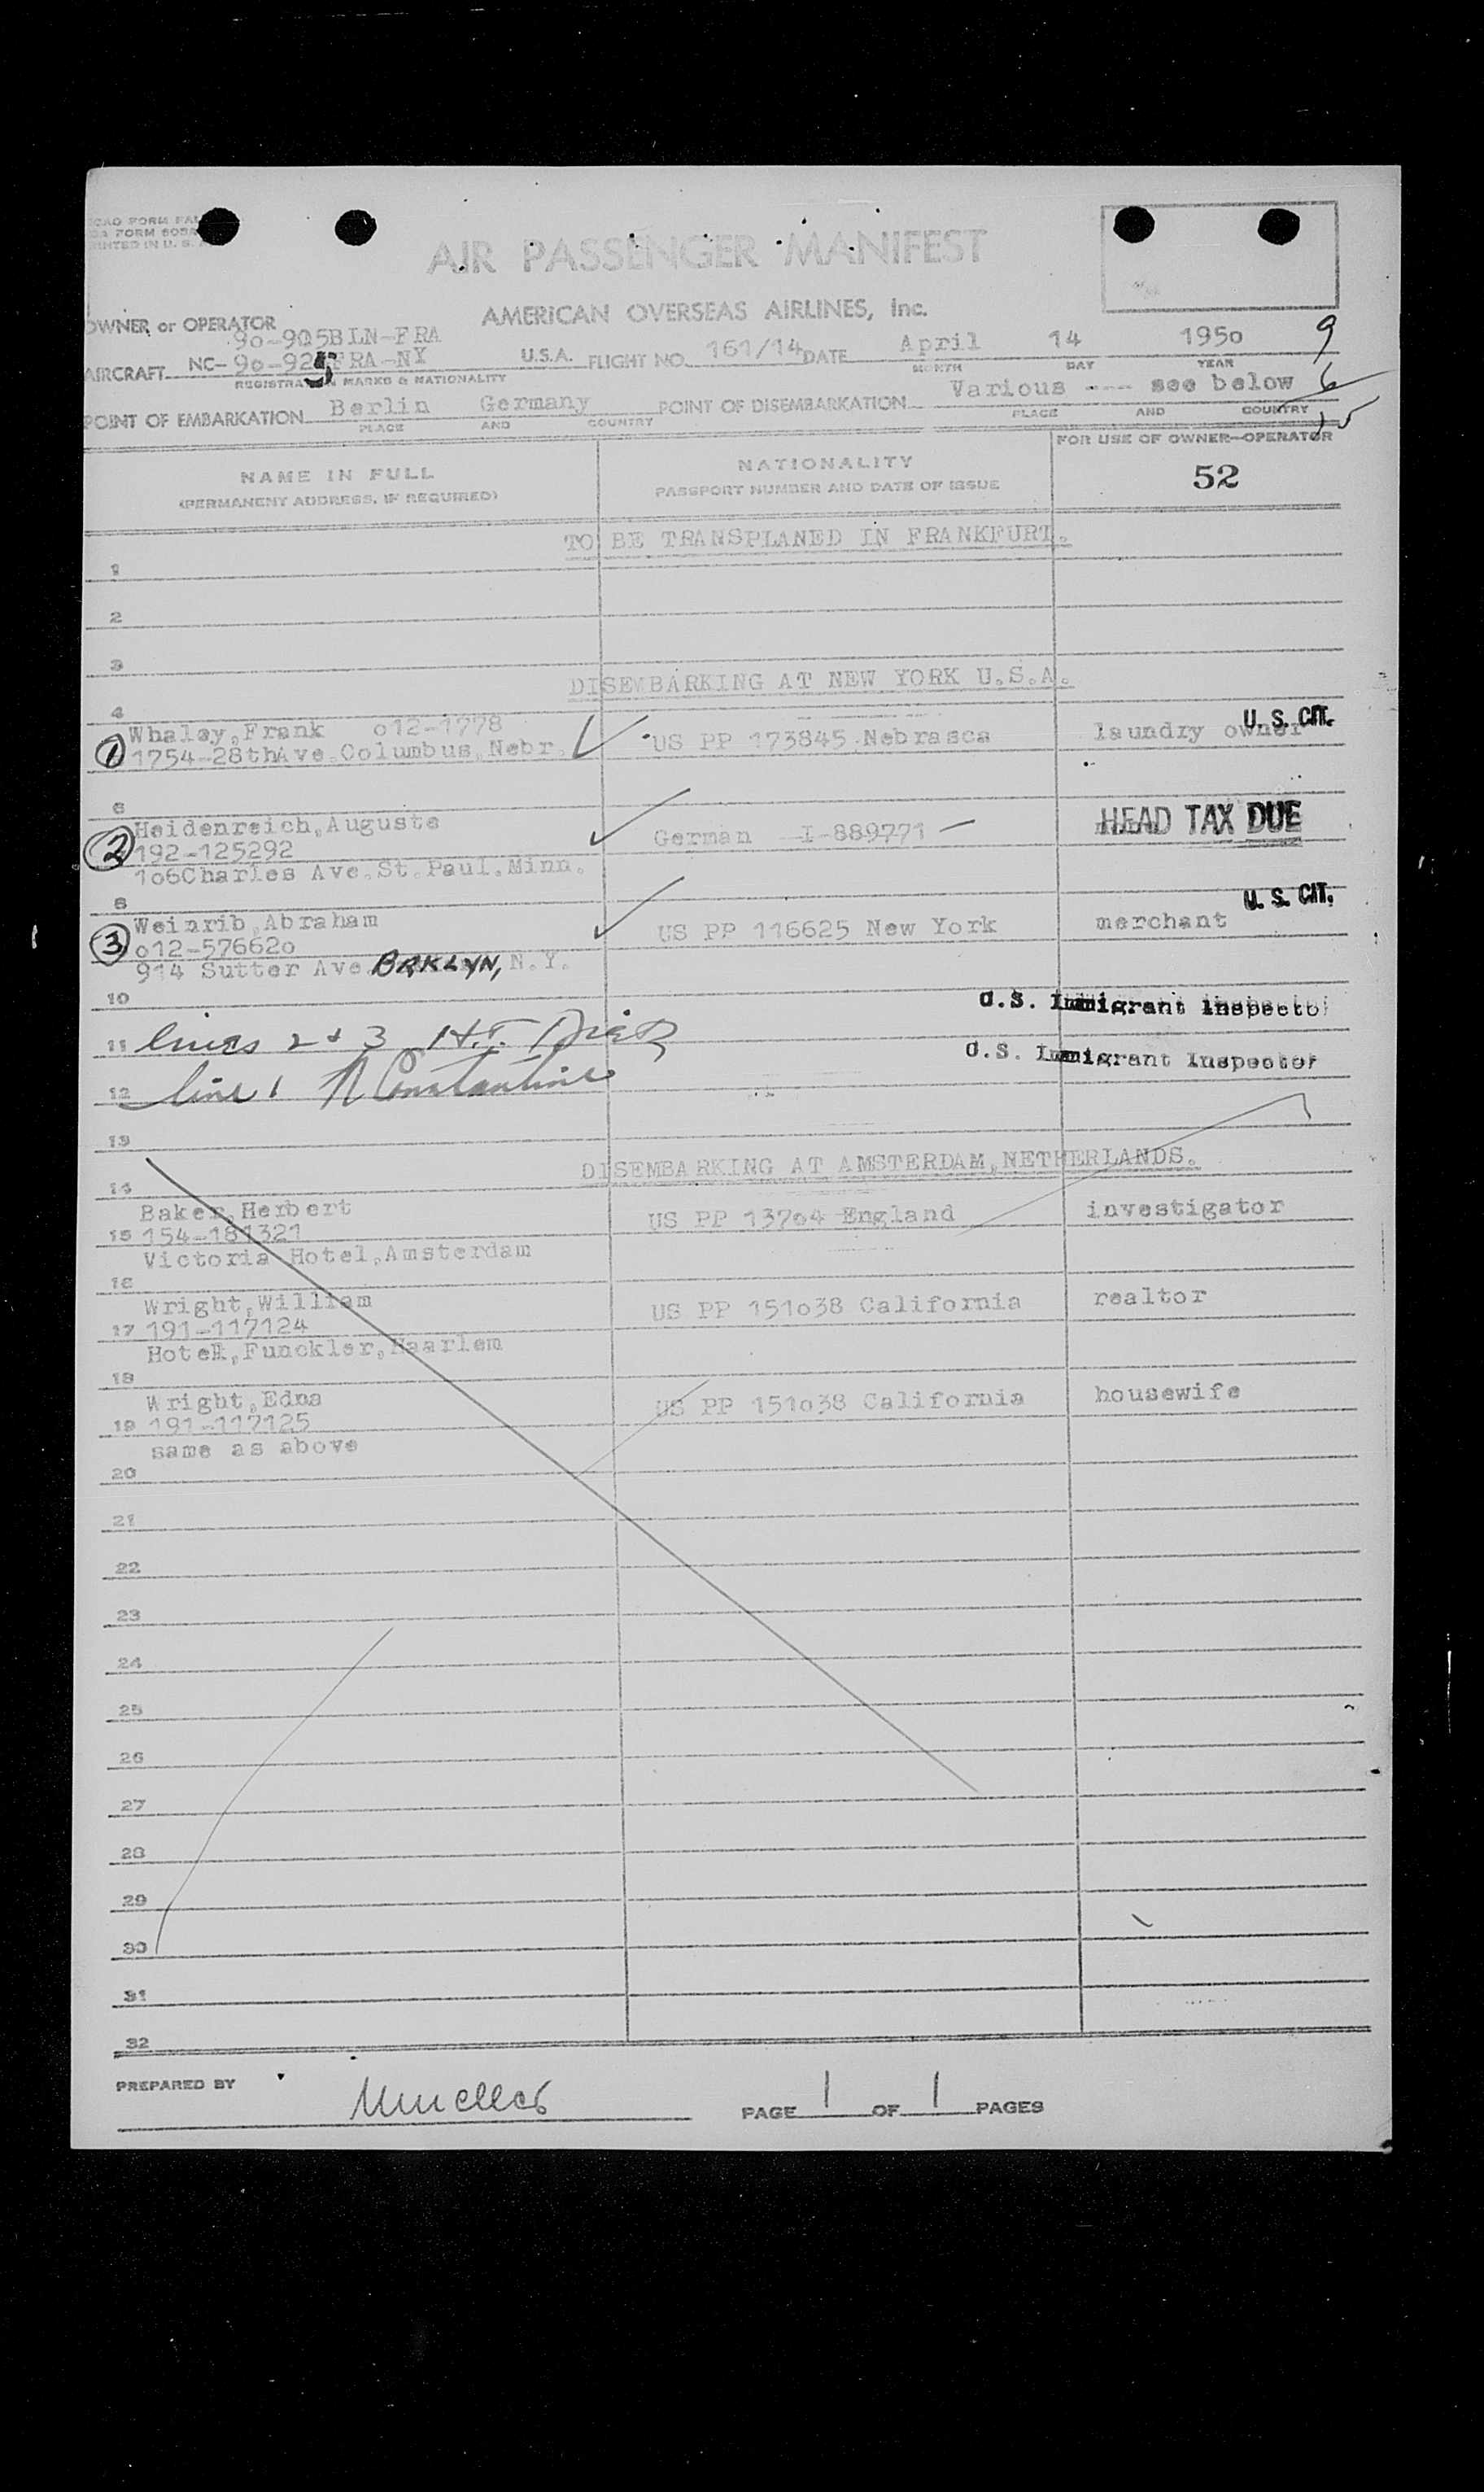 ICAO FORM
FORM
PRINTED IN U. S. A
AIR PASSENGER MANIFEST
AMERICAN OVERSEAS AIRLINES, Inc.
OWNER or OPERATOR
9o-905BLN-FRA
AIRCRAFT NC- 9o-925FRA-NY U.S.A. FLIGHT NO. 161/14 DATE April 14 195o 9
REGISTRATION MARKS & NATIONALITY MONTH DAY YEAR
POINT OF EMBARKATION Berlin Germany POINT OF DISEMBARKATION Various --- see below 6
PLACE AND COUNTRY PLACE AND COUNTRY 15
NAME IN FULL
(PERMANENT ADDRESS, IF REQUIRED)
NATIONALITY
PASSPORT NUMBER AND DATE OF ISSUE
FOR USE OF OWNER-OPERATOR
52
TO BE TRANSPLANED IN FRANKFURT.
1
2
3
DISEMBARKING AT NEW YORK U.S.A.
4
Whaley,Frank o12-1778 US PP 173845 Nebrasca laundry owner U. S. CIT.
1 1754-28thAve.Columbus,Nebr.
6
Heidenreich,Auguste German I-889771 HEAD TAX DUE
2 192-125292
1o6Charles Ave.St.Paul.Minn.
8
Weinrib,Abraham US PP 116625 New York merchant U. S. CIT.
3 o12-57662o
914 Sutter Ave BRKLYN, N.Y.
10 U.S. Immigrant Inspector
11 lines 2 & 3 H.T.
U.S. Immigrant Inspector
12 line 1 N Constantine
13
DISEMBARKING AT AMSTERDAM,NETHERLANDS.
14
Baker,Herbert US PP 137o4 England investigator
15 154-181321
Victoria Hotel,Amsterdam
16
Wright,William US PP 151o38 California realtor
17 191-117124
Hotel,Funckler,Haarlem
18
Wright,Edna US PP 151o38 California housewife
19 191-117125
same as above
20
21
22
23
24
25
26
27
28
29
30
31
32
PREPARED BY Mueller PAGE 1 OF 1 PAGES